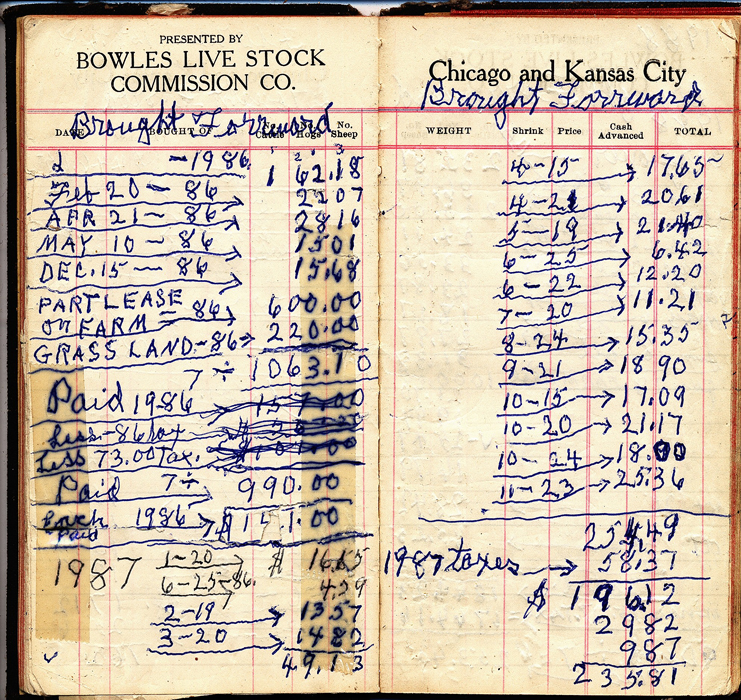 PRESENTED BY
BOWLES LIVE STOCK
COMMISSION CO.
Brought Forward
DATE BOUGHT OF No. Cattle No. Hogs No. Sheep
- 1986 1 62.18
Feb 20 - 86 22 07
APR 21 - 86 28 16
MAY. 10 - 86 15 01
DEC. 15 - 86 15.68
PART LEASE
ON FARM = 86 600.00
GRASS LAND - 86 220.00
7 ÷ 1063.10
Paid 1986 157.00
Less - 86 tax
Less 73.00 tax.
Paid 7 ÷ 990.00
Each 1986 $ 141.00
Paid
1987 1-20 $ 16.65
6-25-86. 4.59
2-19 13.57
3-20 14.82
49.13
Chicago and Kansas City
Brought Forward
WEIGHT Shrink Price Cash Advanced TOTAL
4-15 17.65
4-21 20.61
5-19 21.40
6-25 6.42
6-22 12.20
7-20 11.21
8-24 15.35
9-21 18.90
10-15 17.09
10-20 21.17
10-24 18.00
11-23 25.36
254.49
1987 taxes 58.37
$ 196.12
29 82
9 87
235.81